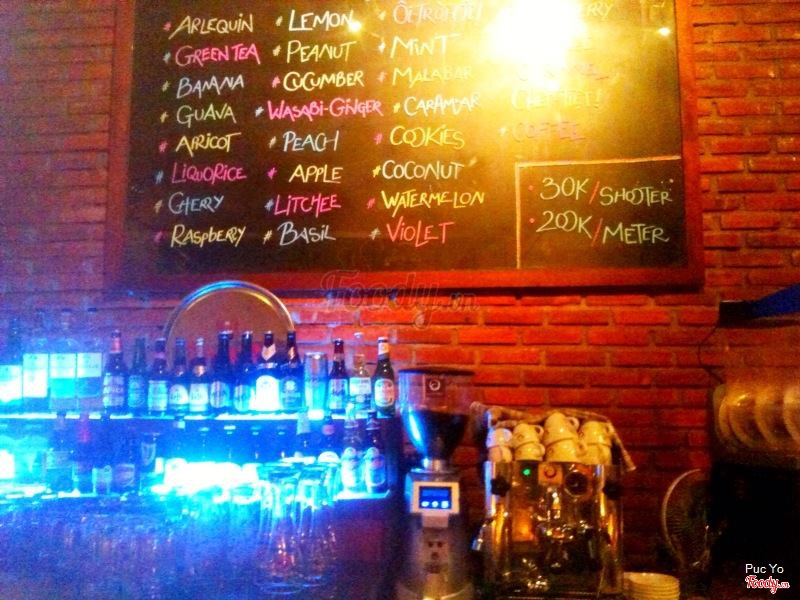 * ARLEQUIN
* GREEN TEA
* BANANA
* GUAVA
* APRICOT
* LIQUORICE
* CHERRY
* RASPBERRY
* LEMON
* PEANUT
* CUCUMBER
* WASABI-GINGER
* PEACH
* APPLE
* LITCHEE
* BASIL
* MINT
* MALABAR
* CARAMBAR
* COOKIES
* COCONUT
* WATERMELON
* VIOLET
* COFFEE
* 30K/SHOOTER
* 200K/METER
Foody.vn
Puc Yo
Foody.vn